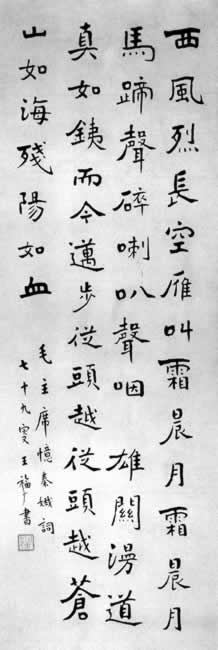 西風烈長空雁叫霜晨月霜晨月
馬蹄聲碎喇叭聲咽 雄關漫道
真如銕而今邁步從頭越從頭越蒼
山如海殘陽如血
毛主席憶秦娥詞
七十九叟王福厂書